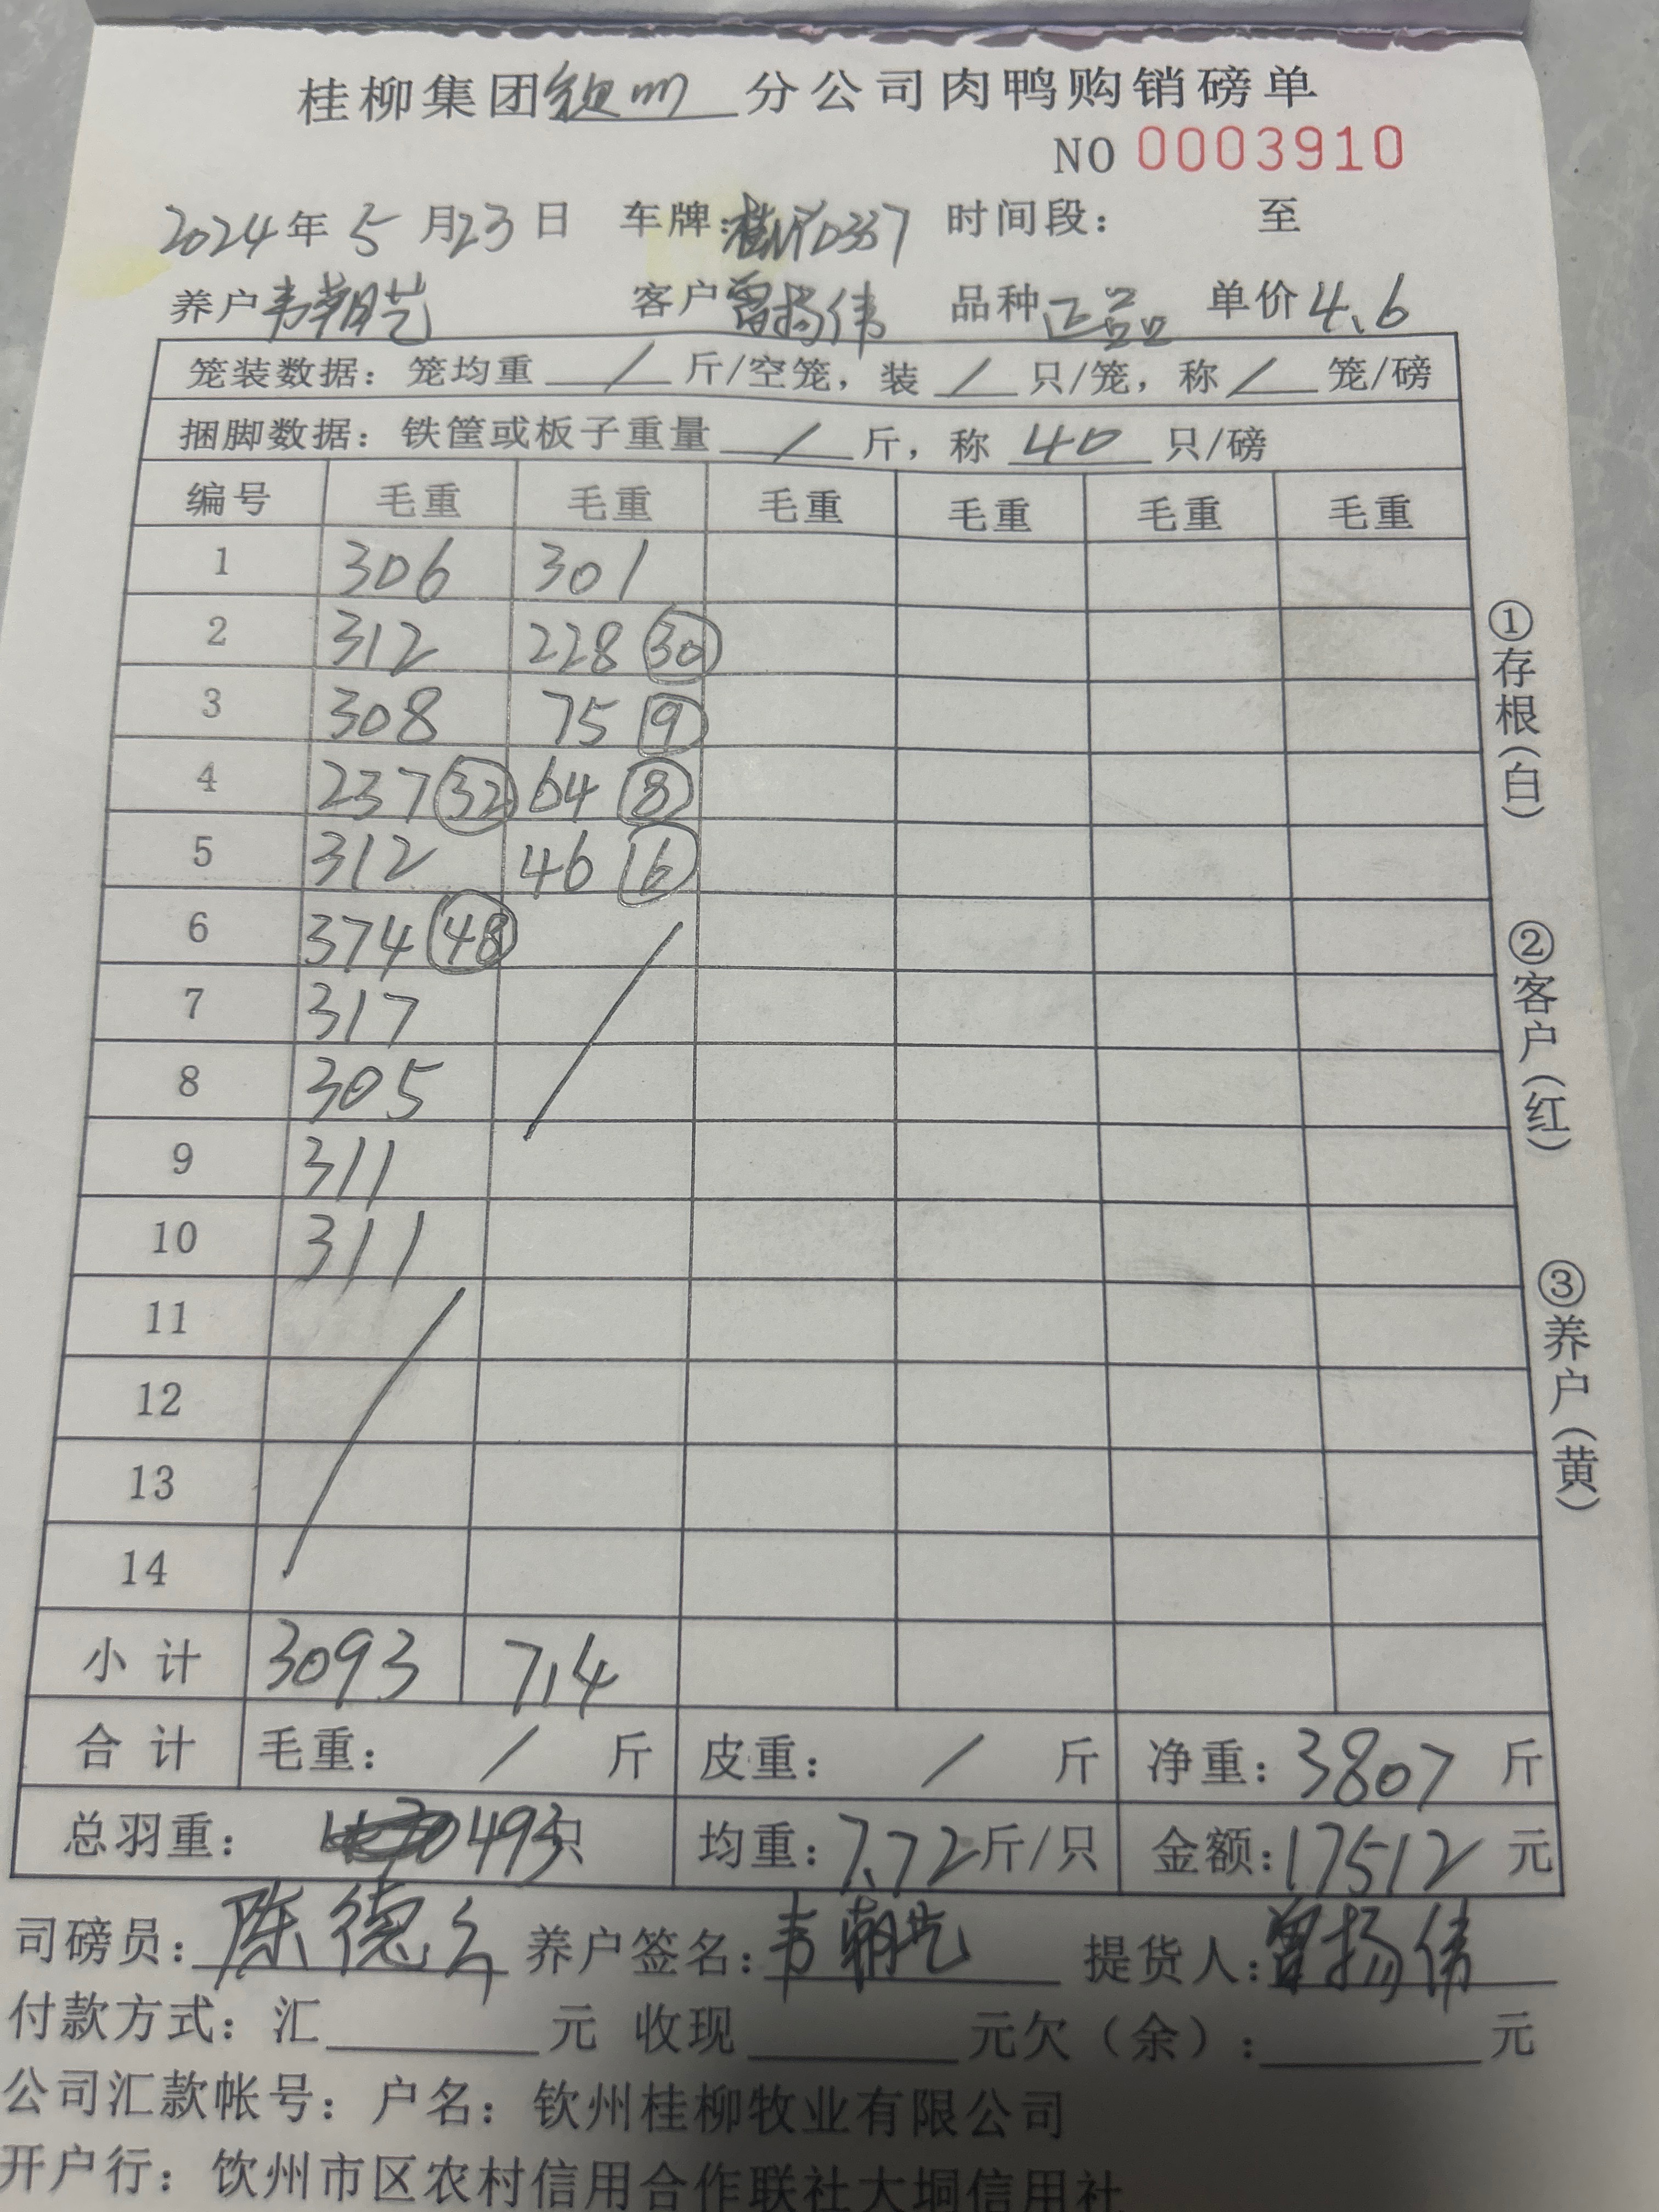 桂柳集团钦州分公司肉鸭购销磅单
NO 0003910
2024年 5 月23日 车牌: 时间段: 至
养户韦朝艺 客户曾扬伟 品种正品 单价4.6
笼装数据: 笼均重 / 斤/空笼, 装 / 只/笼, 称 / 笼/磅
捆脚数据: 铁筐或板子重量 / 斤, 称 40 只/磅
编号 毛重 毛重 毛重 毛重 毛重 毛重
1 306 301
2 312 228 30
3 308 75 9
4 237 32 64 8
5 312 46 16
6 374 48
7 317
8 305
9 311
10 311
11
12
13
14
小计 3093 714
合计 毛重: / 斤 皮重: / 斤 净重: 3807 斤
总羽重: 493只 均重: 7.72斤/只 金额: 17512 元
司磅员: 陈德 养户签名: 韦朝艺 提货人: 曾扬伟
付款方式: 汇 元 收现 元欠(余): 元
公司汇款帐号: 户名: 钦州桂柳牧业有限公司
开户行: 钦州市区农村信用合作联社大垌信用社
①存根(白)
②客户(红)
③养户(黄)